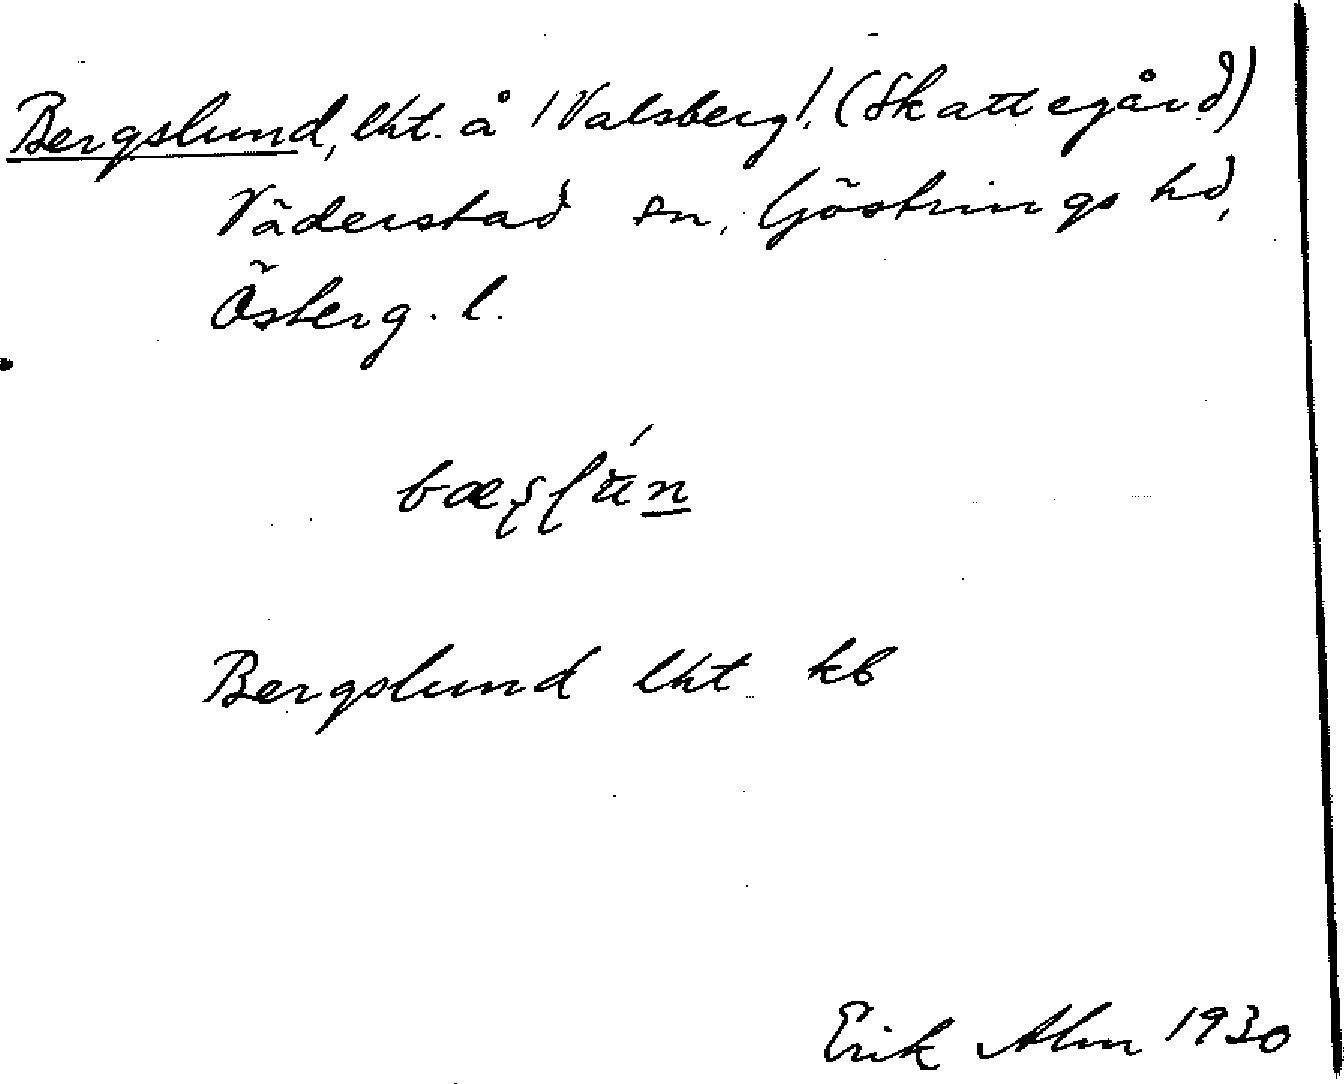 Bergslund, lht. å /Valsberg/. (Skattegård)
Väderstad sn, Göstrings hd,
Österg. l.
Bergslund lht kb
Erik Alm 1930